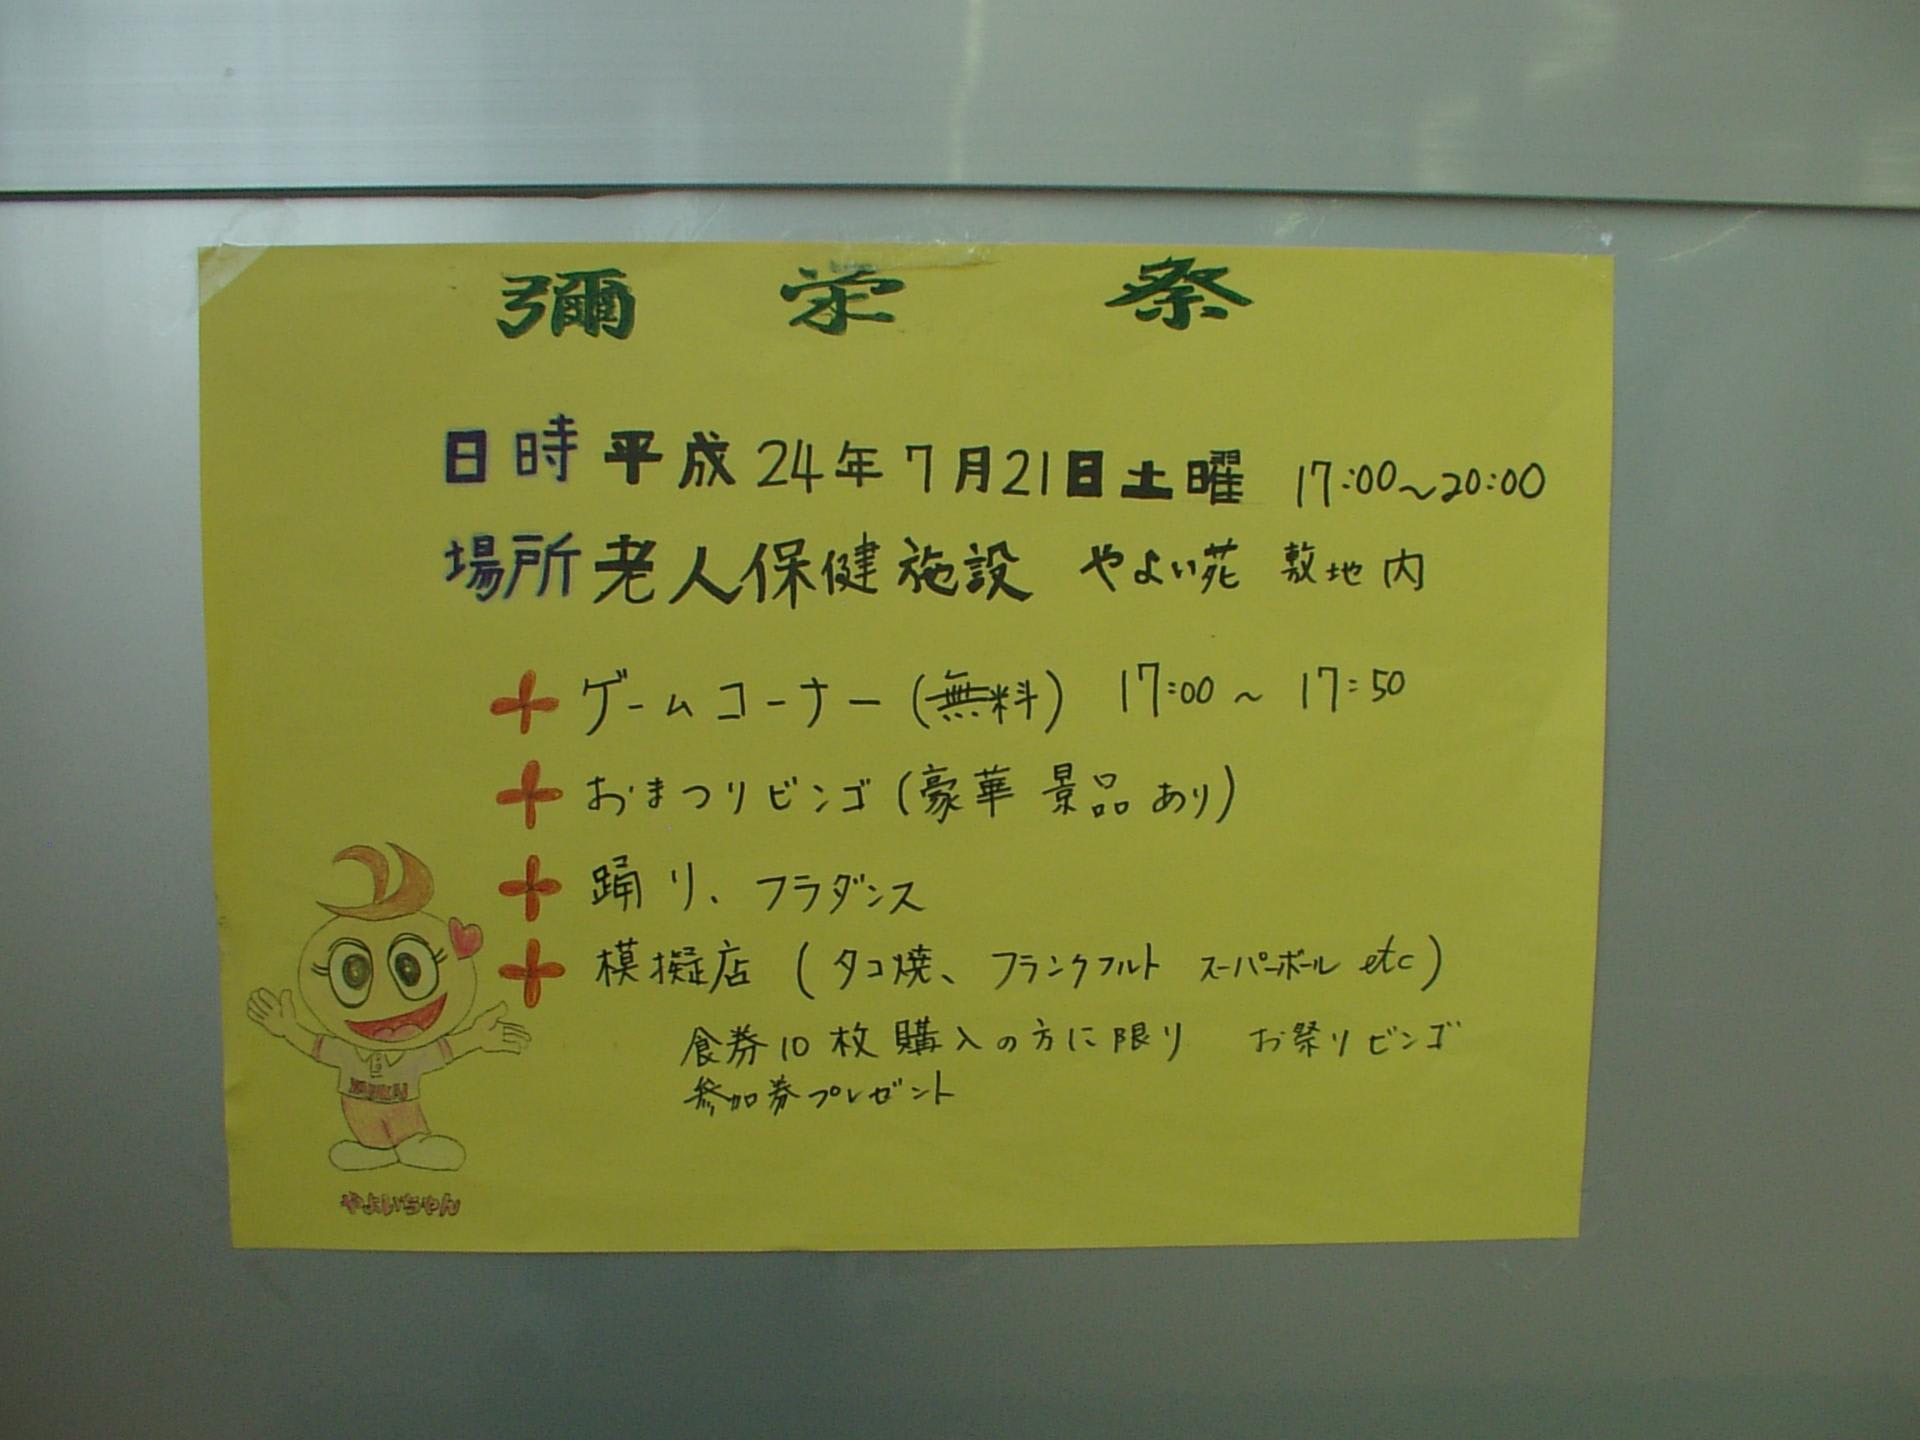 彌栄祭
日時 平成24年7月21日土曜 17:00～20:00
場所 老人保健施設 やよい苑 敷地内
ゲームコーナー(無料) 17:00～17:50
おまつりビンゴ(豪華景品あり)
踊り、フラダンス
模擬店 (タコ焼、フランクフルト スーパーボール etc)
食券10枚購入の方に限り お祭りビンゴ
参加券プレゼント
やよいちゃん